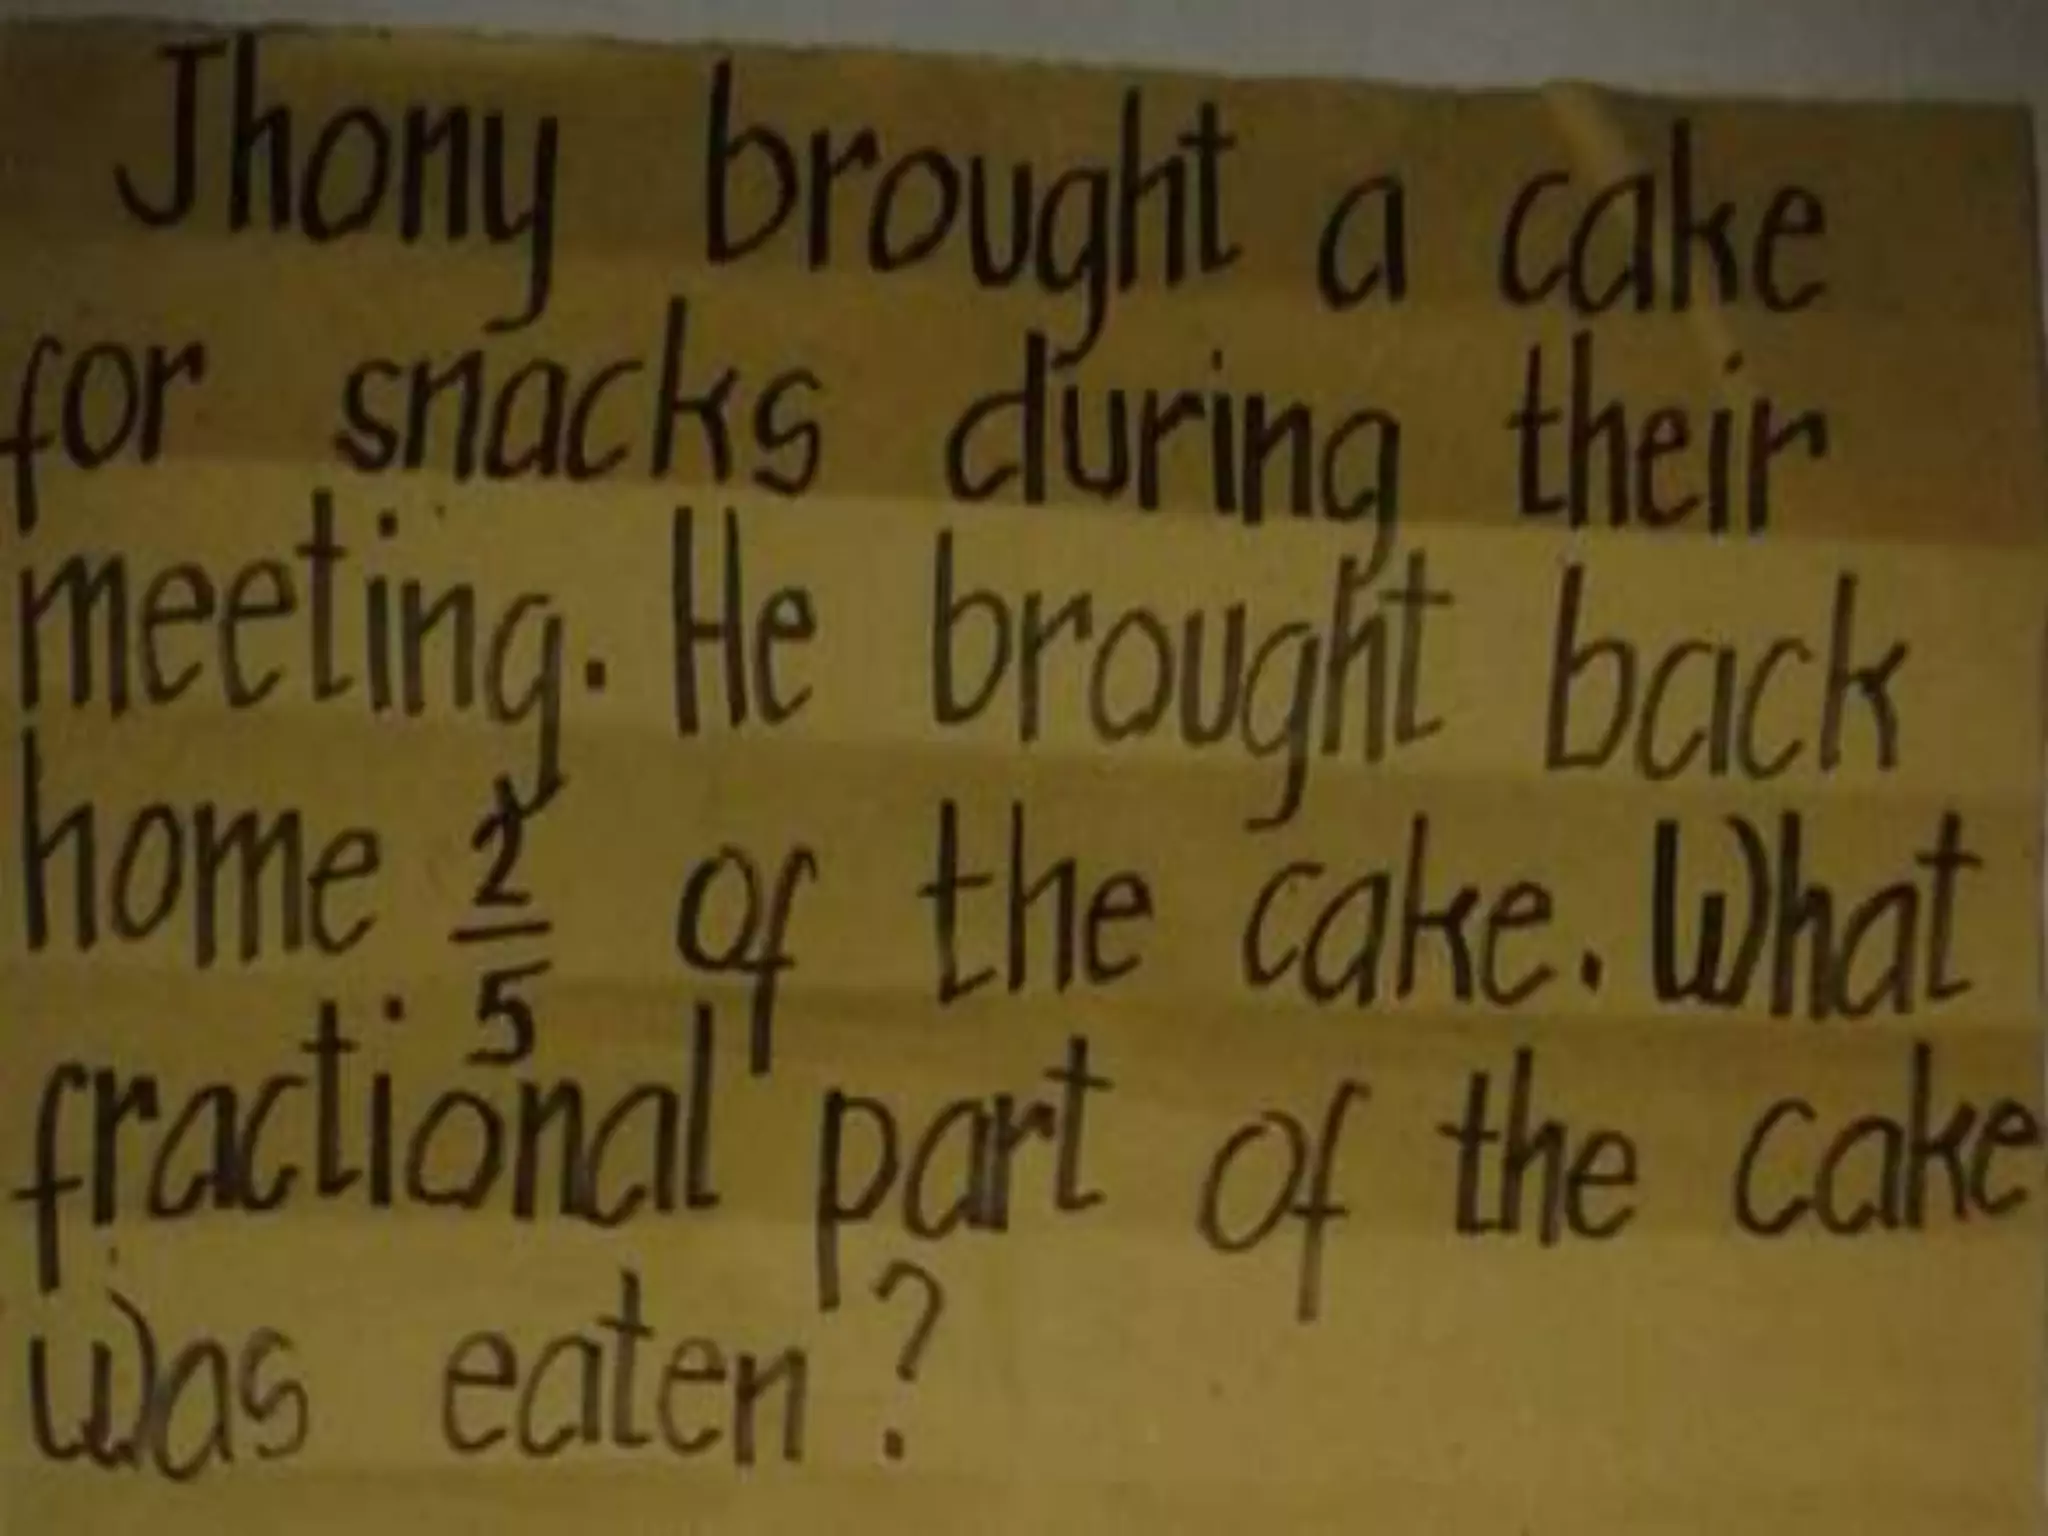 Jhony brought a cake
for snacks during their
meeting. He brought back
home 2/5 of the cake. What
fractional part of the cake
was eaten?